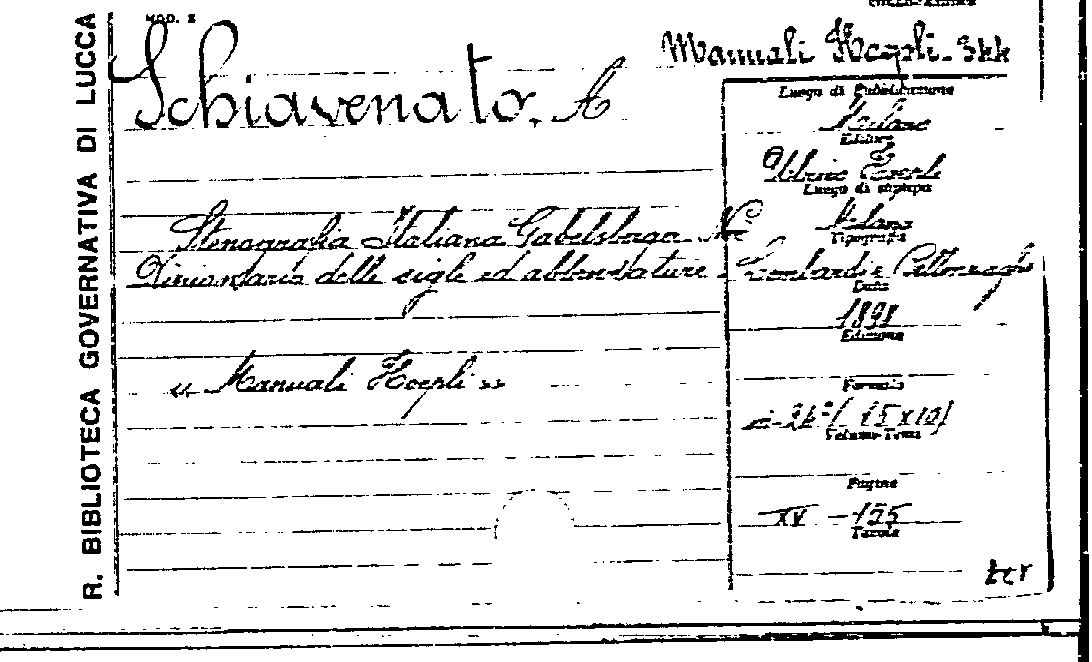 MOD. 2
R. BIBLIOTECA GOVERNATIVA DI LUCCA
Schiavenato. A
Manuali Hoepli. 344
Luogo di Pubblicazione
Milano
Editore
Ulrico Hoepli
Luogo di stampa
Stenografia Italiana Gabelsbage Noe
Milano
Tipografia
Dizionario delle sigle ed abbreviature
Lombardi e
Data
1898
Edizione
« Manuali Hoepli »
Formato
(15 x 10)
Volume-Tomi
Pagine
XV - 155
Tavole
ter